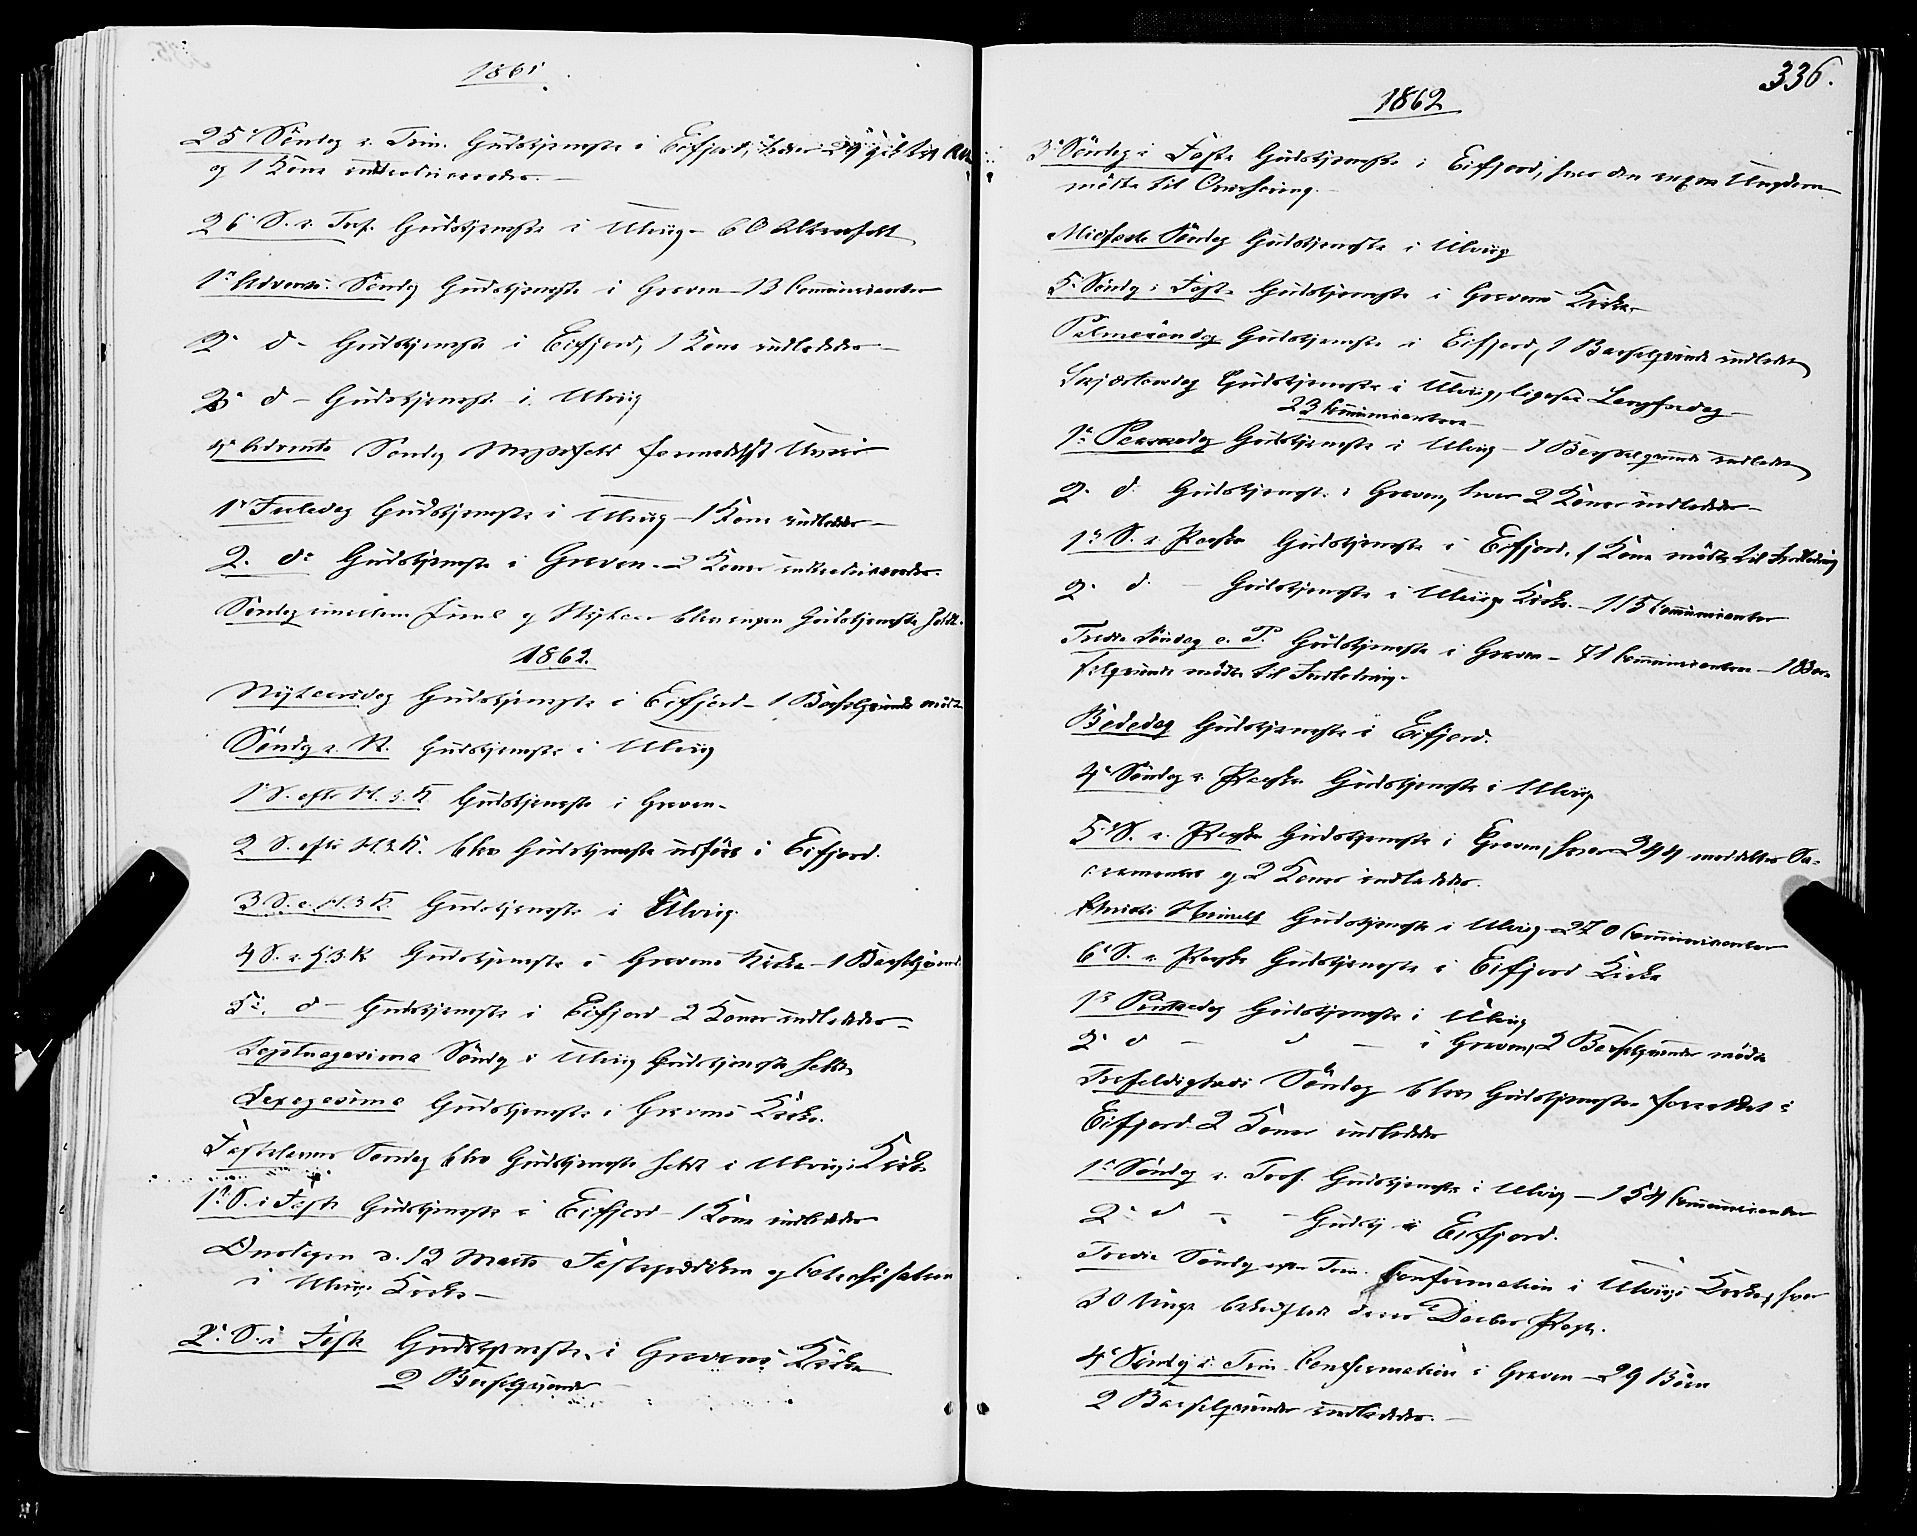 1861.
25' Söndag e. Trin. Gudstjeneste i Eifjord, hvor 29 gik til
og 1 Kone introduceredes. —
26' S. e. Tref. Gudstjeneste i Ulvig — 60 Altergjest
1ste Advents Söndag Gudstjeneste i Graven — 13 Communicanter
2' d — Gudstjeneste i Eifjord, 1 Kone indlededes —
3' d — Gudstjeneste i Ulvig
4' Advents Söndag Messefald formedelst Uveir
1' Juledag Gudstjeneste i Ulvig — 1 Kone indlededes —
2. do Gudstjeneste i Graven — 2 Koner introduceredes.
Söndag imellem Juul og Nytaar blev ingen Gudstjeneste holdt.
1862.
Nytaarsdag Gudstjeneste i Eifjord — 1 Barselqvinde mödte
Söndag e. N. Gudstjeneste i Ulvig
1' S. efter H. 3. K Gudstjeneste i Graven —
2 S. efter H. 3 K. blev Gudstjeneste udført i Eifjord.
3 S. e. H. 3 K. Gudstjeneste i Ulvig.
4 S. e. H. 3. K Gudstjeneste i Gravens Kirke — 1 Barselqvinde
5'. d — Gudstjeneste i Eifjord — 2 Koner indlededes —
Septuagesima Söndag i Ulvig Gudstjeneste holdt
Sexagesima Gudstjeneste i Gravens Kirke.
Fastelavns Söndag blev Gudstjeneste holdt i Ulvigs Kirke
1ste S. i Faste Gudstjeneste i Eifjord — 1 Kone indlededes
Onsdagen d. 12 Marts Fasteprædiken og Catechisation
i Ulvigs Kirke —
2' S. i Faste Gudstjeneste i Gravens Kirke
2 Barselqvinder
336.
1862
3' Söndag i Faste Gudstjeneste i Eifjord, hvor den Ungdom
mödte til Overhöring. —
Midfaste Söndag Gudstjeneste i Ulvig
5' Söndag i Faste Gudstjeneste i Gravens Kirke
Palmesöndag Gudstjeneste i Eifjord, 1 Barselqvinde indledet
Skjærtorsdag Gudstjeneste i Ulvig, ligesaa Langfredag —
23 Communicantere
1ste Paaskedag Gudstjeneste i Ulvig — 1 Barselqvinde indledet
2. d. Gudstjeneste i Graven, hvor 2 Koner indlededes —
1ste S. e. Paaske Gudstjeneste i Eifjord, 1 Kone mödte til Indledning
2. d. — Gudstjeneste i Ulvigs Kirke — 115 Communicanter
Tredie Söndag e. P. Gudstjeneste i Graven — 71 Communicantere — 1 Bar-
selqvinde mödte til Indledning.
Bededag Gudstjeneste i Eifjord.
4' Söndag e. Paaske Gudstjeneste i Ulvig
5' S. e. Paaske Gudstjeneste i Graven, hvor 244 meddeltes Sa-
cramentet og 2 Koner indlededes.
Christi Himmelf Gudstjeneste i Ulvig — 270 Communicanter
6' S. e. Paaske Gudstjeneste i Eifjord Kirke
1ste Pintsedag Gudstjeneste i Ulvig
2' d — d — i Graven, 2 Barselqvinder mödte
Trefoldigheds Söndag blev Gudstjeneste forrettet i
Eifjord 2 Koner indlededes
1ste Söndag e. Tref. Gudstjeneste i Ulvig — 154 Communicanter
2' d — — Gudstj i Eifjord.
Tredie Söndag efter Trin. Confirmation i Ulvigs Kirke, hvor
30 Unge bekræftede deres Daabs Pagt.
4' Söndag e. Trin. Confirmation i Graven — 29 Börn
2 Barselqvinder indlededes. —